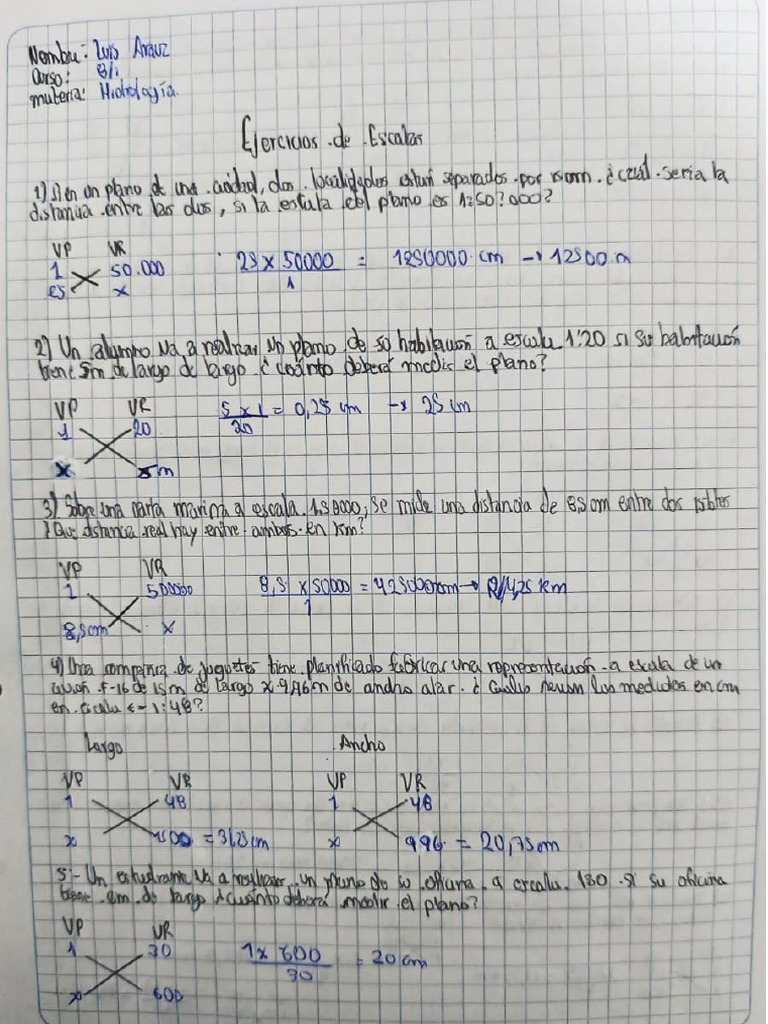 Nombre: Luis Arauz
Curso: 8/1
materia: Hidrología.
Ejercicios de Escalas
1) Si en un plano de una ciudad, dos localidades estan separados por. ¿cuál seria la
distancia entre las dos, si la escala del plano es 1:50?000?
VP VR
1 50.000
25 x
25 x 50000 = 1250000 cm → 12500 m
1
2) Un alumno va a realizar un plano de su habitación a escala 1:20 si su habitación
tiene 5m de largo de largo ¿cuánto deberá medir el plano?
VP VR
1 20
x 5m
5 x 1 = 0,25 cm → 25 cm
20
3) Sobre una carta marina a escala 1:50000, se mide una distancia de 8,5cm entre dos
¿Que distancia real hay entre ambos en km?
VP VR
1 500000
8,5cm x
8,5 x 50000 = 425000cm → 4,25 km
1
4) Una compañia de juguetes tiene planificado fabricar una representación a escala de un
avion F-16 de 15m de largo x 9,96m de ancho alar. ¿ Cuáles seran las medidas en cm
en escala 1:48?
Largo Ancho
VP VR VP VR
1 48 1 48
x 1500 = 31,25cm x 996 = 20,75cm
5- Un estudiante va a realizar un plano de su oficina a escala 1:30 si su oficina
tiene 6m de largo ¿cuánto deberá medir el plano?
VP VR
1 30
x 600
1 x 600 = 20 cm
30